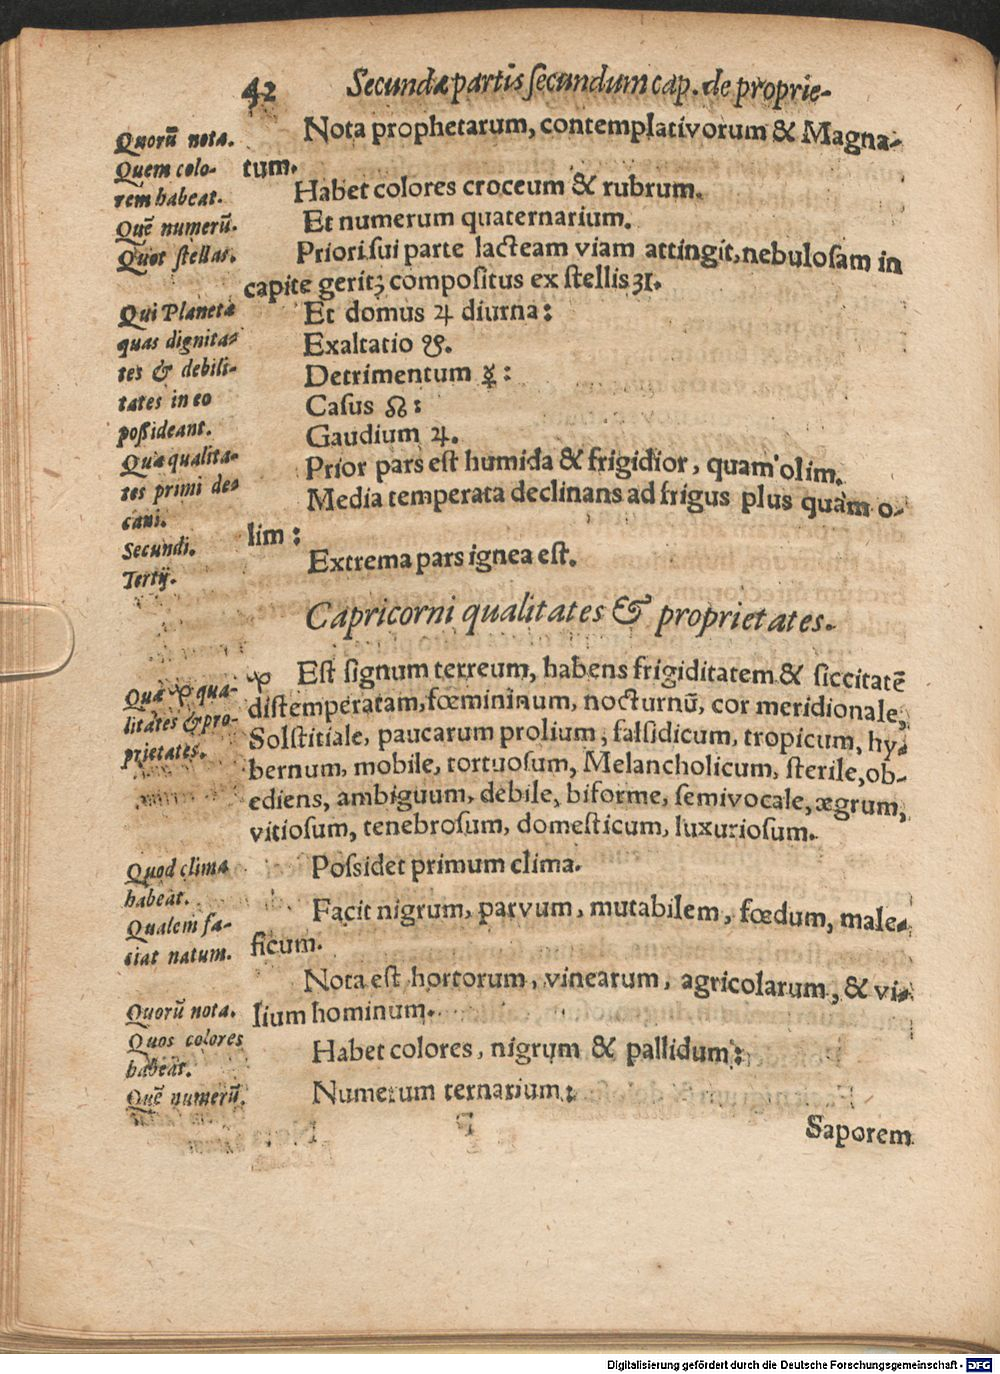 42 Secundæ partis secundum cap. de proprie-
Quorũ nota.
Nota prophetarum, contemplativorum & Magna-
Quem colo-
tum.
rem habeat.
Habet colores croceum & rubrum.
Quẽ numerũ.
Et numerum quaternarium.
Quot stellas.
Priori sui parte lacteam viam attingit, nebulosam in
capite gerit; compositus ex stellis 31.
Qui Planetæ
Et domus ♃ diurna:
quas dignita-
Exaltatio ☋.
tes & debili-
Detrimentum ☿:
tates in eo
Casus ☊:
possideant.
Gaudium ♃.
Quæ qualita-
Prior pars est humida & frigidior, quam olim.
tes primi de-
Media temperata declinans ad frigus plus quàm o-
cani.
lim:
Secundi.
Extrema pars ignea est.
Tertij.
Capricorni qualitates & proprietates.
Quæ ♑ qua-
litates & pro-
prietates.
♑ Est signum terreum, habens frigiditatem & siccitatẽ
distemperatam, fœmininum, nocturnũ, cor meridionale,
Solstitiale, paucarum prolium, falsidicum, tropicum, hy-
bernum, mobile, tortuosum, Melancholicum, sterile, ob-
ediens, ambiguum, debile, biforme, semivocale, ægrum,
vitiosum, tenebrosum, domesticum, luxuriosum.
Quod clima
habeat.
Possidet primum clima.
Qualem fa-
ciat natum.
Facit nigrum, parvum, mutabilem, fœdum, male-
ficum.
Quorũ nota.
Nota est hortorum, vinearum, agricolarum, & vi-
lium hominum.
Quos colores
habeat.
Habet colores, nigrum & pallidum:
Quẽ numerũ.
Numerum ternarium:
Saporem
Digitalisierung gefördert durch die Deutsche Forschungsgemeinschaft - DFG